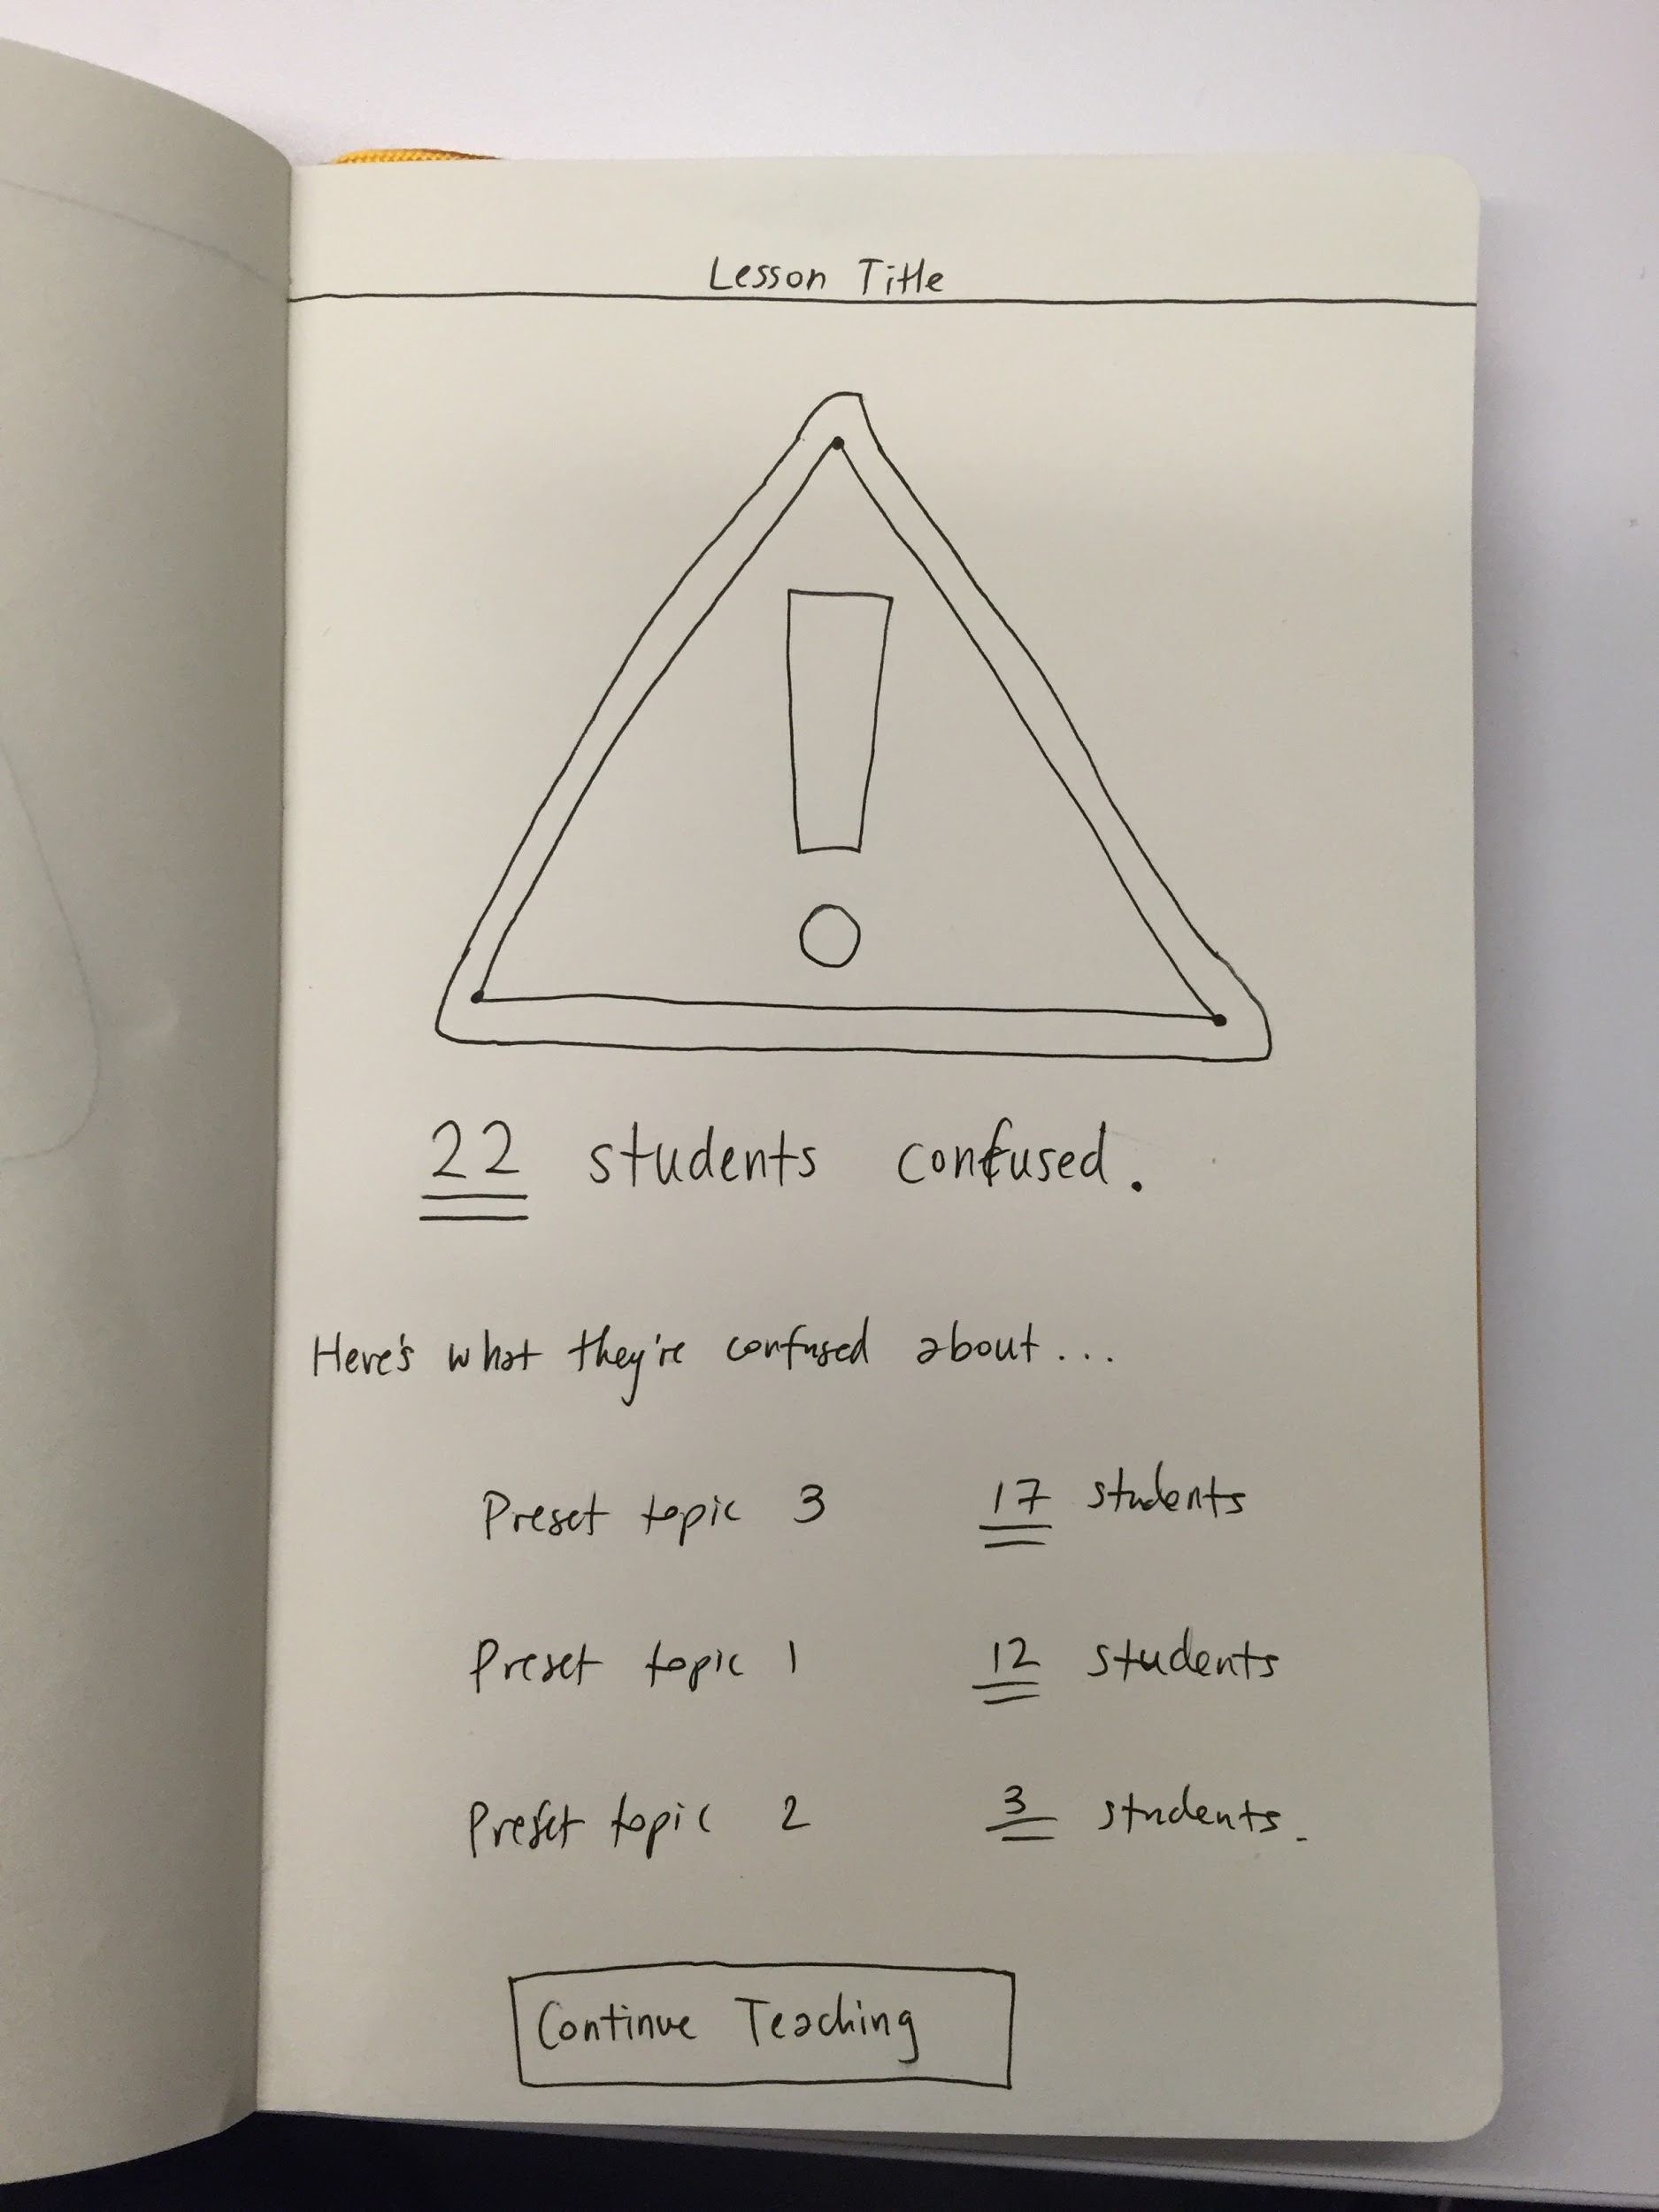 Lesson Title
22 students confused.
Here's what they're confused about...
Preset topic 3 17 students
Preset topic 1 12 students
Preset topic 2 3 students.
Continue Teaching